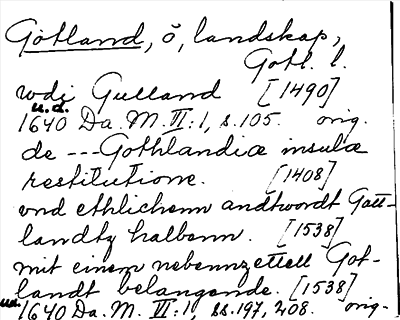 Gotland, ö, landskap,
Gotl. l.
wdi Gulland [1490]
u.d.
1640 Da. M. VI:1, s. 105. orig.
de --- Gothlandiæ insulæ
restitutione. [1408]
vnd ethlichenn andtwordt Gott-
landtz halbenn. [1538]
mit einem nebennzettell Got-
landt belangende. [1538]
u.d.
1640 Da. M. VI:1, ss. 197, 208. orig.